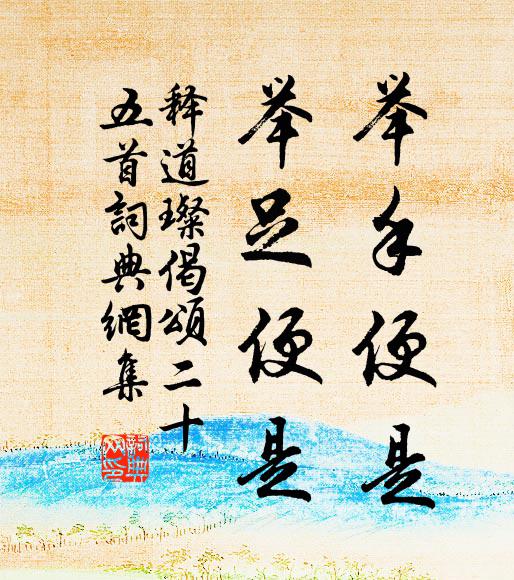 举手便是
举足便是
释道璨偈頌二十
五首詞典網集